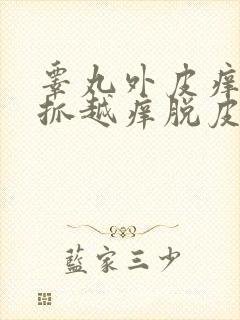 睪丸外皮痒
抓越痒脱皮
藍家三少